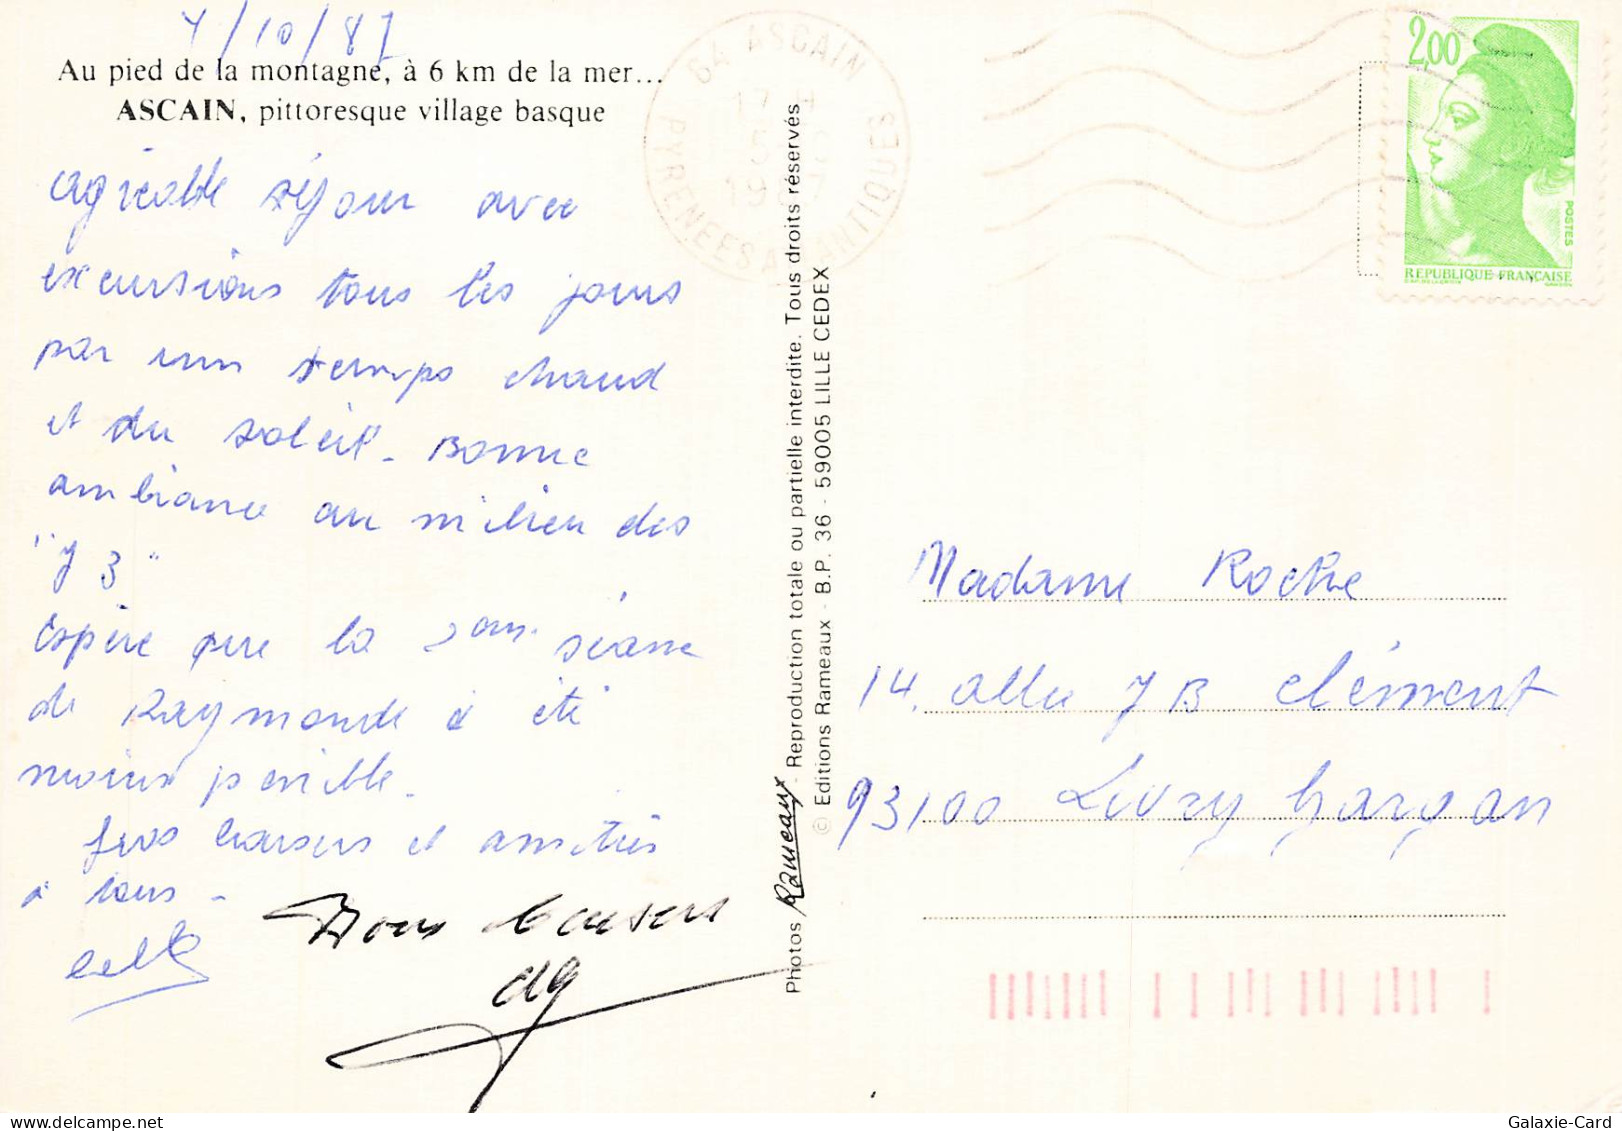 7/10/87
Au pied de la montagne, à 6 km de la mer...
ASCAIN, pittoresque village basque
agréable séjour avec
excursions tous les jours
par un temps chaud
et du soleil - Bonne
ambiance au milieu des
"J3"
Espère que la séance
de Raymonde a été
moins pénible -
gros baisers et amitiés
à tous -
Bons baisers
64 ASCAIN
PYRENEES ATLANTIQUES
1987
Photos Rameaux - Reproduction totale ou partielle interdite. Tous droits réservés
© Editions Rameaux - B.P. 36 - 59005 LILLE CEDEX
2,00
POSTES
REPUBLIQUE FRANÇAISE
Madame Roche
14. allée JB Clément
93100 Livry Gargan
Galaxie-Card